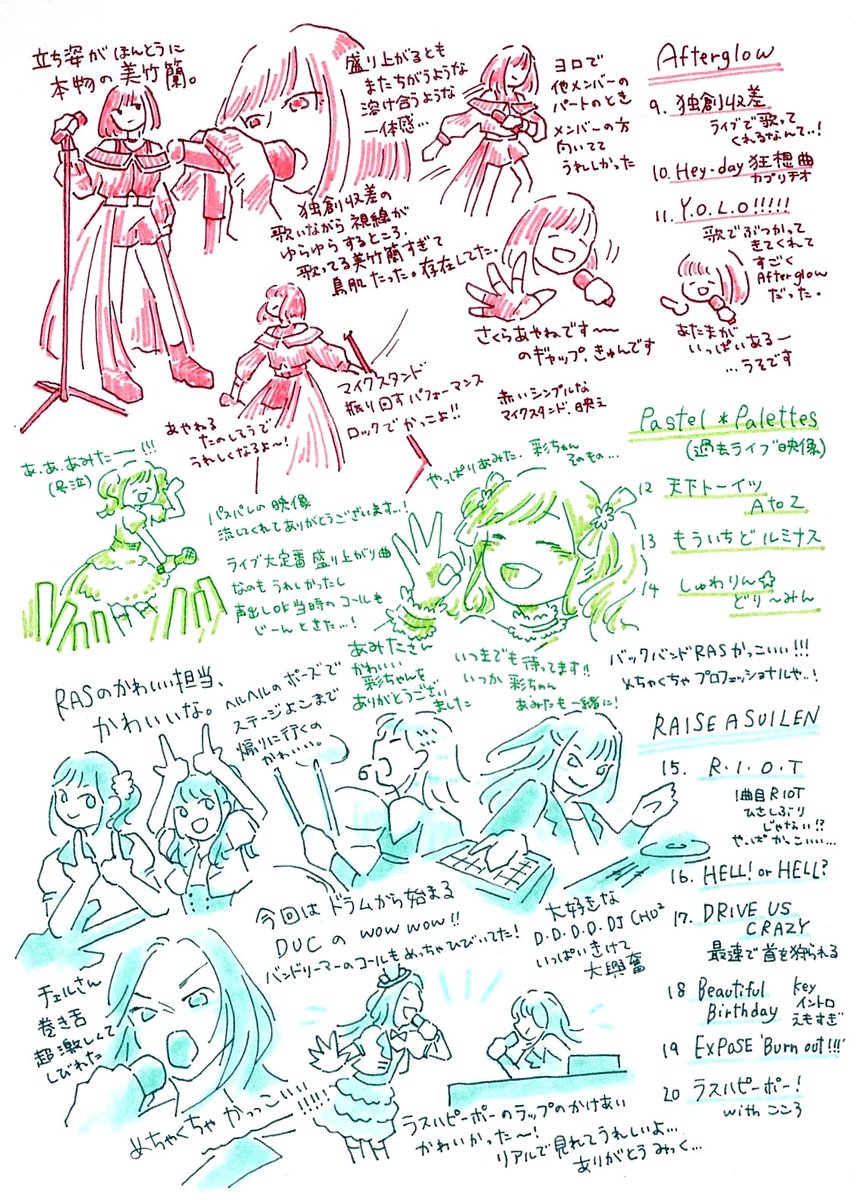 立ち姿がほんとうに
本物の美竹蘭。
盛り上がるとも
またちがうような
溶け合うような
一体感…
ヨロで
他メンバーの
パートのとき
メンバーの方
向いてて
うれしかった
Afterglow
9. 独創収差
ライブで歌って
くれるなんて..!
10. Hey-day 狂想曲
カプリチオ
11. Y.O.L.O!!!!!
歌でぶつかって
きてくれて
すごく
Afterglow
だった。
独創収差の
歌いながら視線が
ゆらゆらするところ、
歌ってる美竹蘭すぎて
鳥肌だった。存在してた。
さくらあやねです〜〜
のギャップ きゅんです
あたまが
いっぱいあるー
…うそです
マイクスタンド
振り回すパフォーマンス
ロックでかっこよ!!
赤いシンプルな
マイクスタンド、映え
あやねる
たのしそうで
うれしくなるよ〜!
あ、あ、あみたー!!!
(号泣)
パスパレの映像
流してくれてありがとうございます..!
ライブ大定番 盛り上がり曲
なのもうれしかったし
声出しOK当時のコールも
じーんときた…!
やっぱりあみた、彩ちゃん
そのもの…
Pastel*Palettes
(過去ライブ映像)
12 天下トーイツ
A to Z
13 もういちど ルミナス
14 しゅわりん☆
どり〜みん
あみたさん
かわいい
彩ちゃんを
ありがとうござい
ました
いつまでも待ってます!!
いつか 彩ちゃん
あみたも一緒に!
バックバンドRASかっこいい!!!
めちゃくちゃ プロフェッショナルや..!
RASのかわいい担当、
かわいいな。
ヘルヘルのポーズで
ステージよこまで
煽りに行くの
かわいい。
RAISE A SUILEN
15. R・I・O・T
1曲目RIOT
ひさしぶり
じゃない!?
やっぱかっこいい…
16. HELL! or HELL?
17. DRIVE US
CRAZY
最速で首を狩られる
18 Beautiful
Birthday
Key
イントロ
えもすぎ
19 EXPOSE 'Burn out!!!'
20 ラスハピーポー!
with こころ
今回はドラムから始まる
DUCのwow wow!!
バンドリーマーのコールもめっちゃひびいてた!
大好きな
D.D.D.D.DJ CHU²
いっぱいきけて
大興奮
チェルさん
巻き舌
超激しくて
しびれた
めちゃくちゃかっこいい!!!!!
ラスハピーポーのラップのかけあい
かわいかった〜!
リアルで見れてうれしいよ…
ありがとうみっく…